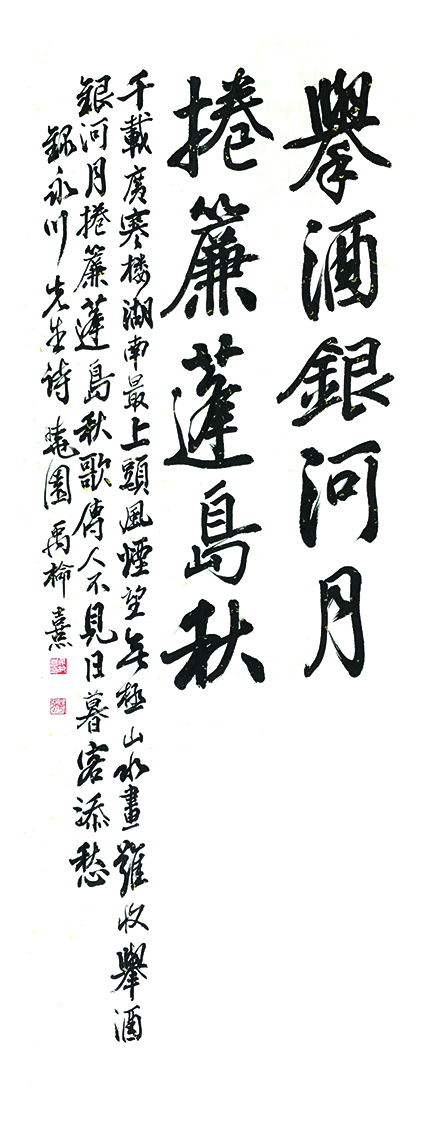 擧酒銀河月
捲簾蓬島秋
千載廣寒樓湖南最上頭風煙望无極山水畫難收擧酒
銀河月捲簾蓬島秋歌傳人不見日暮客添愁
錄永川先生詩 曉園 禹榆熹